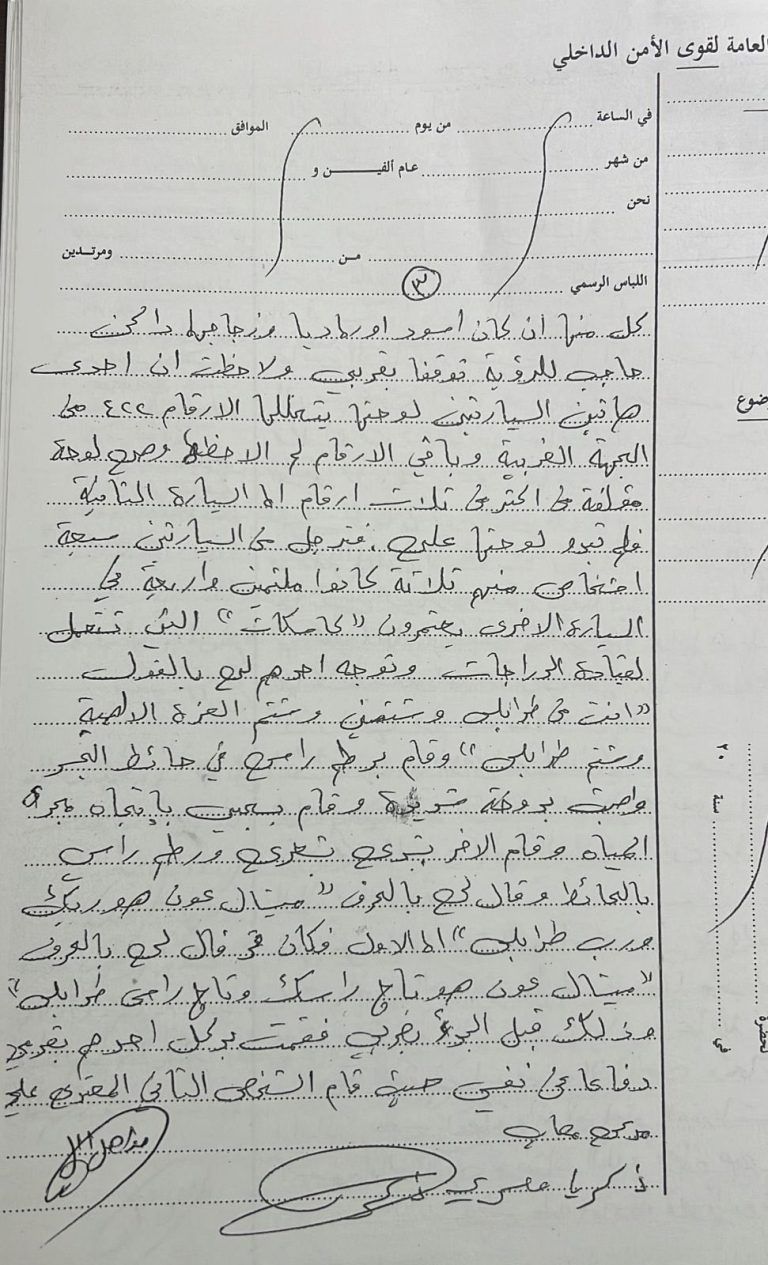 العامة لقوى الأمن الداخلي
في الساعة ........ من يوم ........ الموافق ........
من شهر ........ عام ألفيـــن و ........
نحن ........
........ من ........ ومرتدين
اللباس الرسمي ........
٣
كل منها ان كان اسود او رماديا وزجاجها داكن
حاجب للرؤية توقفتا بقربي ولاحظت ان احدى
هاتين السيارتين لوحتها يتخللها الارقام ٤٢٢ من
الجهة الغربية وباقي الارقام لم الاحظها وهي لوحة
مؤلفة من اكثر من ثلاث ارقام اما السيارة الثانية
فلم تبدو لوحتها علي. فترجل من السيارتين سبعة
اشخاص منهم ثلاثة كانوا ملثمين واربعة في
السيارة الاخرى يعتمرون "كاسكات" التي تتعمل
لقيادة الدراجات وتوجه احدهم لي بالقول
"انت من طرابلس وشتمني وشتم العزة الالهية
وشتم طرابلس" وقام برطم راسي في حائط الجسر
واصبت بدوخة شديدة وقام بسحبي بإتجاه مجرى
المياه وقام الاخر بنزع ورطم راسي
بالحائط وقال لي بالحرف "ميشال عون هو ربك
ورب طرابلس" اما الاول فكان قد قال لي بالحرف
"ميشال عون هو تاج راسك وتاج راس طرابلس"
وذلك قبل البدء بضربي فقمت بركل احدهم بقدمي
دفاعا عن نفسي حيث قام الشخص الثاني المعتدي علي
زكريا مصري
ضوع
٢٠
سنة
في